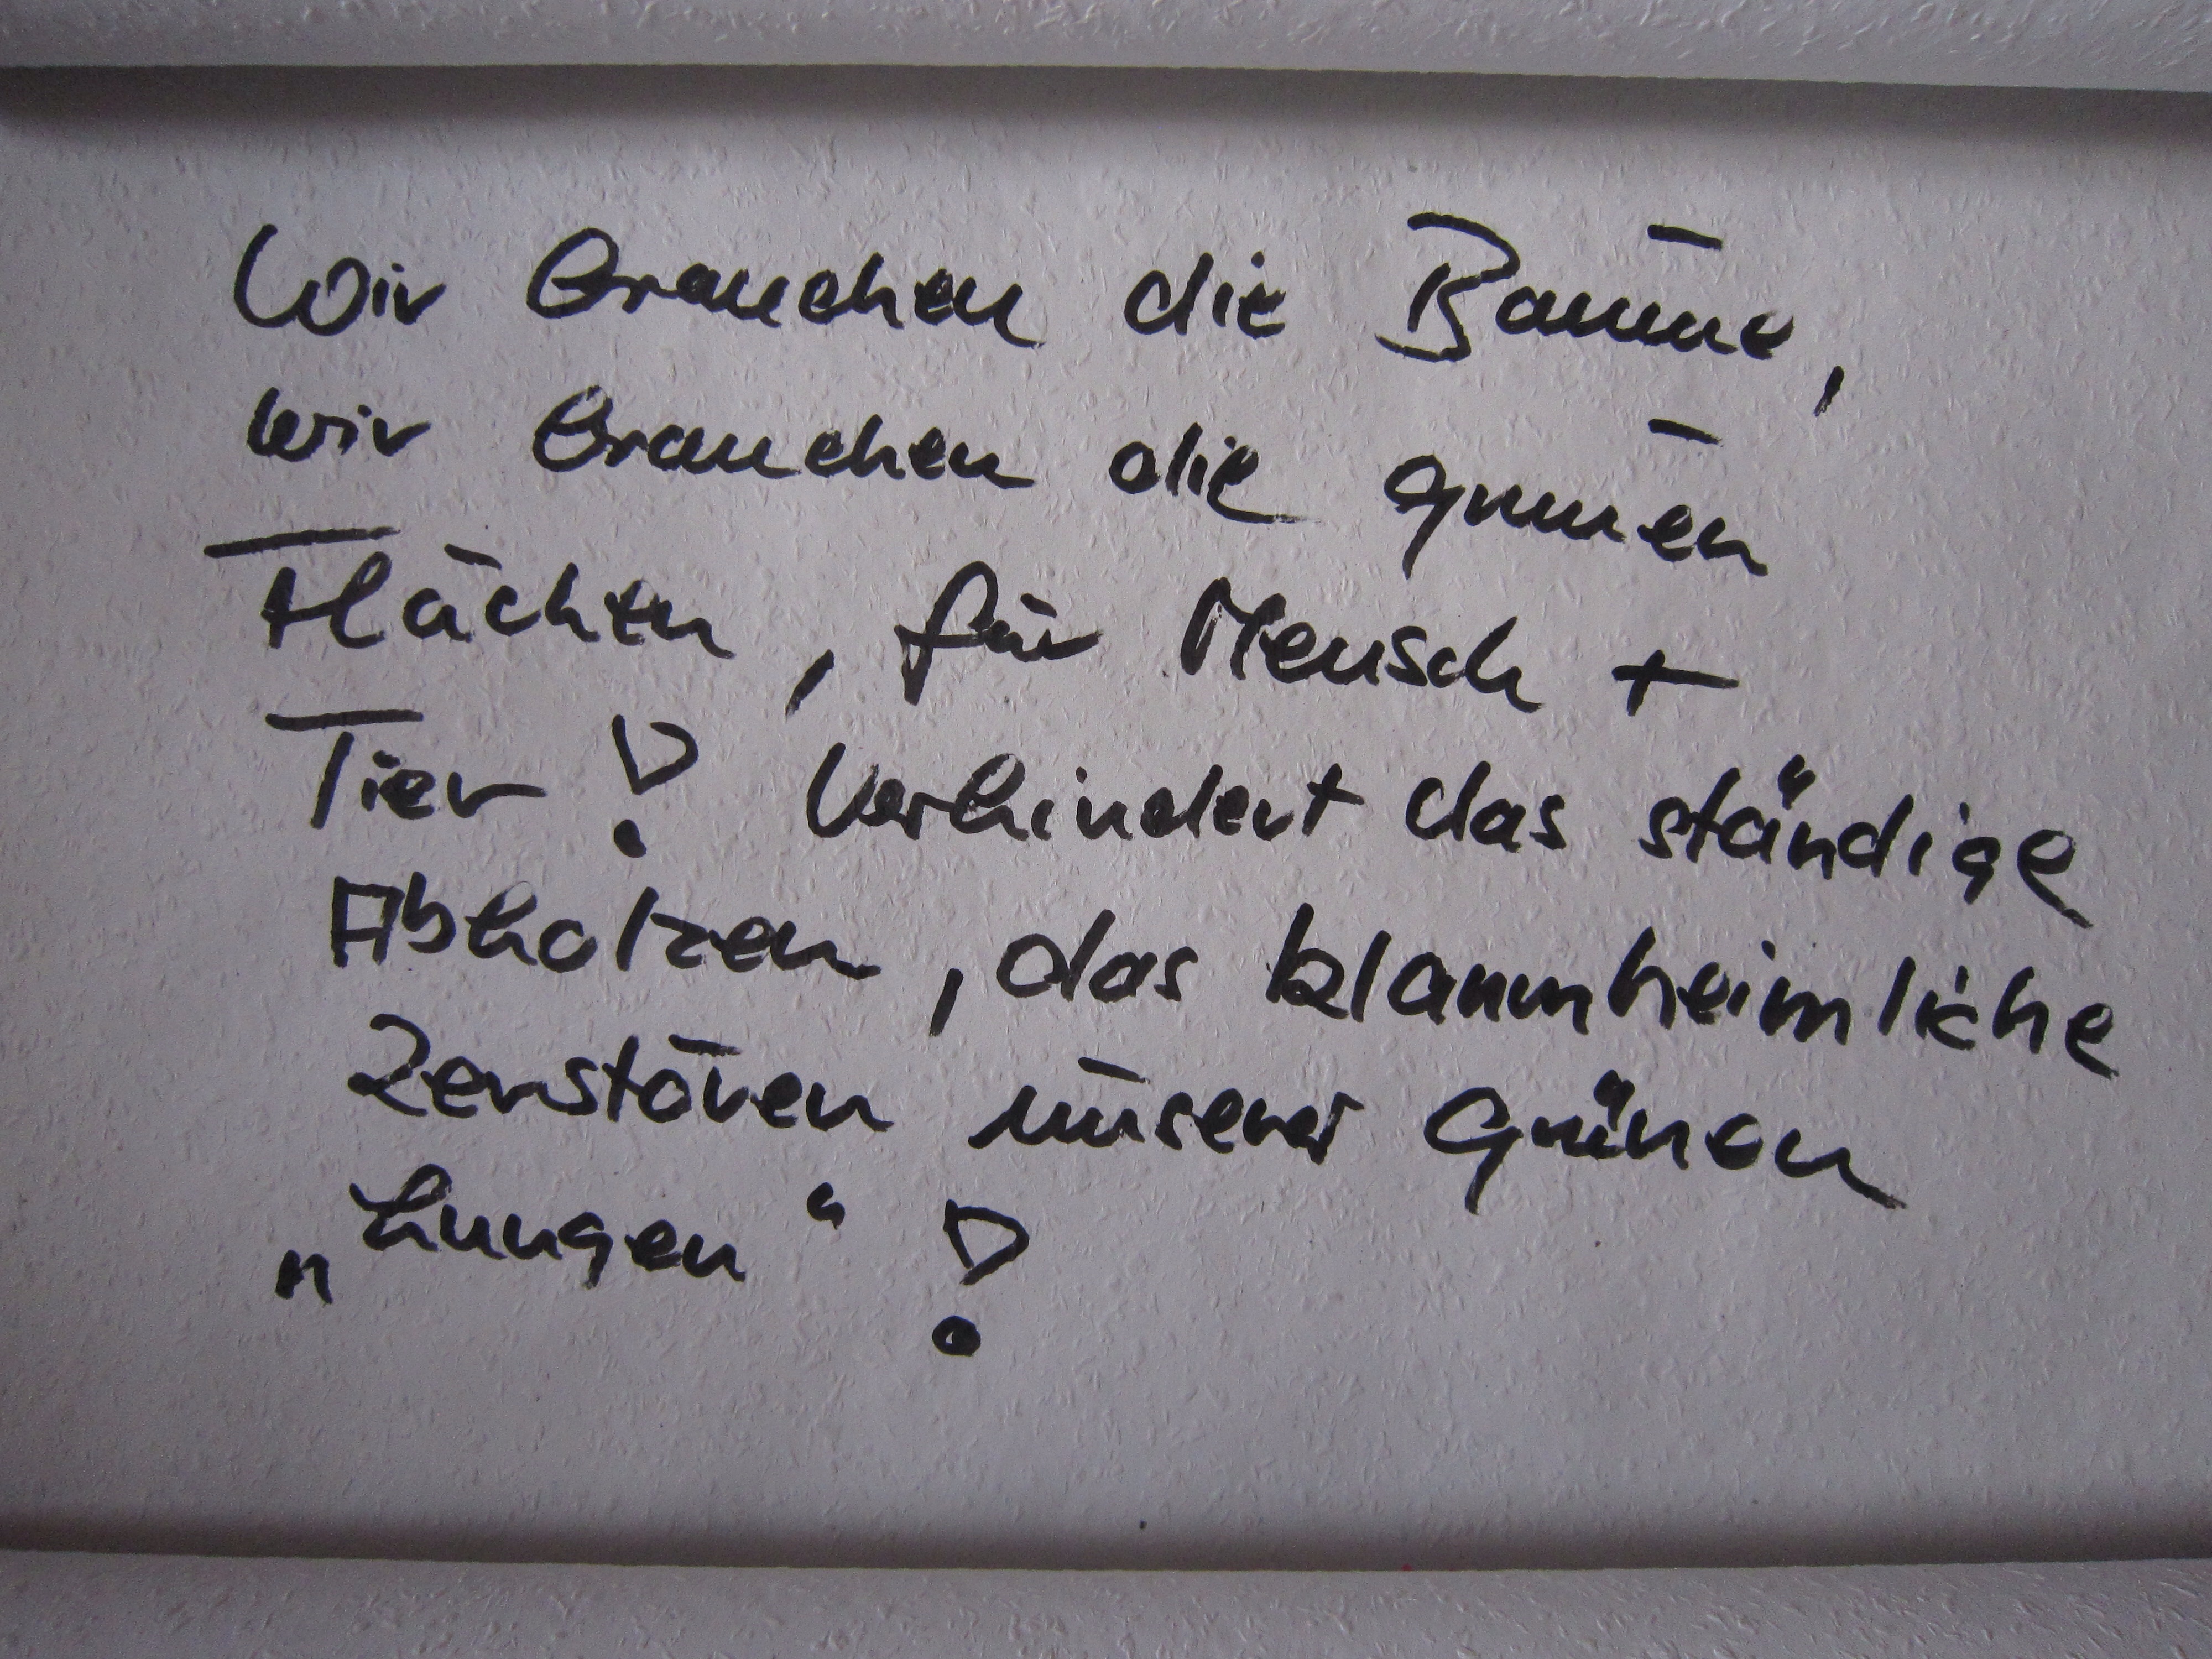 Wir brauchen die Bäume,
wir brauchen die grünen
Flächen, für Mensch +
Tier! Verhindert das ständige
Abholzen, das klammheimliche
Zerstören unserer grünen
„Lungen“!